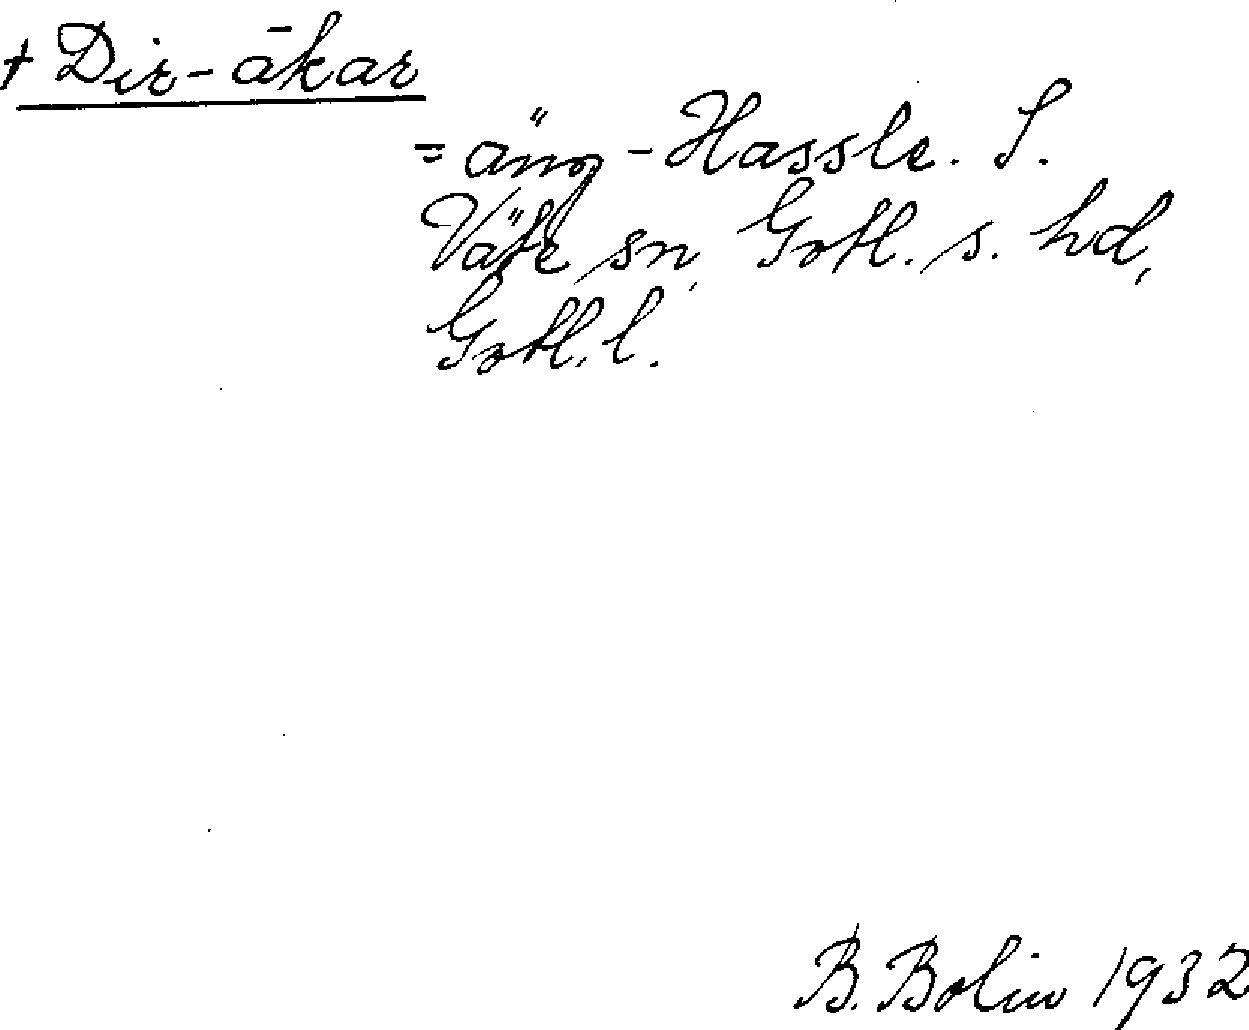 + Dir-ākar
= äng - Hassle. S.
Väte sn, Gotl. s. hd,
Gotl. l.
B. Bolin 1932